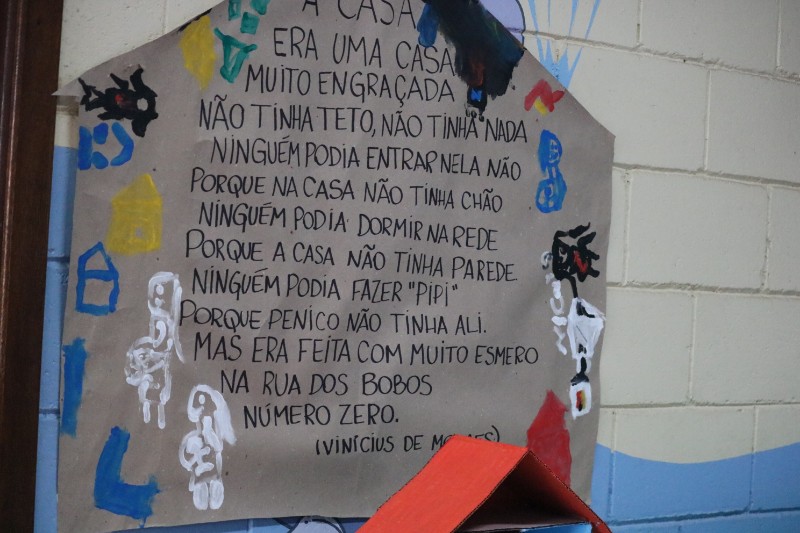 A CASA
ERA UMA CASA
MUITO ENGRAÇADA
NÃO TINHA TETO, NÃO TINHA NADA
NINGUÉM PODIA ENTRAR NELA NÃO
PORQUE NA CASA NÃO TINHA CHÃO
NINGUÉM PODIA DORMIR NA REDE
PORQUE A CASA NÃO TINHA PAREDE.
NINGUÉM PODIA FAZER "PIPI"
PORQUE PENICO NÃO TINHA ALI.
MAS ERA FEITA COM MUITO ESMERO
NA RUA DOS BOBOS
NÚMERO ZERO.
(VINÍCIUS DE MORAES)